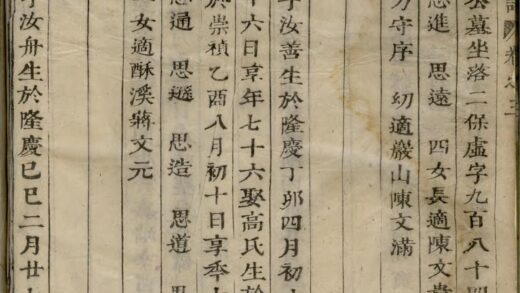 譜 卷之三
公墓坐落二保虛字九百八十四
思進 思遠 四女長適陳文貴
方守序 幼適嚴山陳文滿
子汝善生於隆慶丁卯四月初十
十六日享年七十六娶高氏生於
於崇禎乙酉八月初十日享年七
思通 思遜 思造 思道 思
一女適酥溪蔣文元
子汝舟生於隆慶己巳二月廿